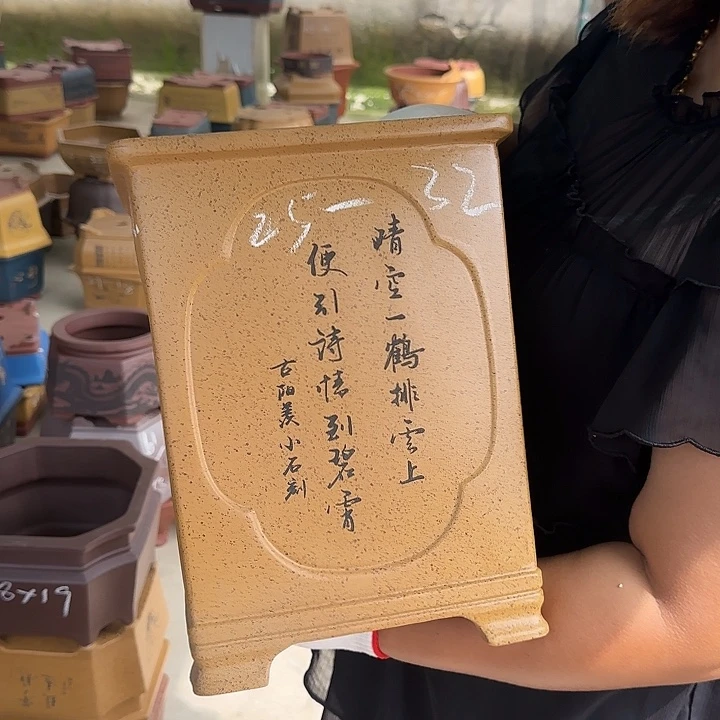 25-32
晴空一鹤排雲上
便引詩情到碧霄
古阳羡小石刻
8x19